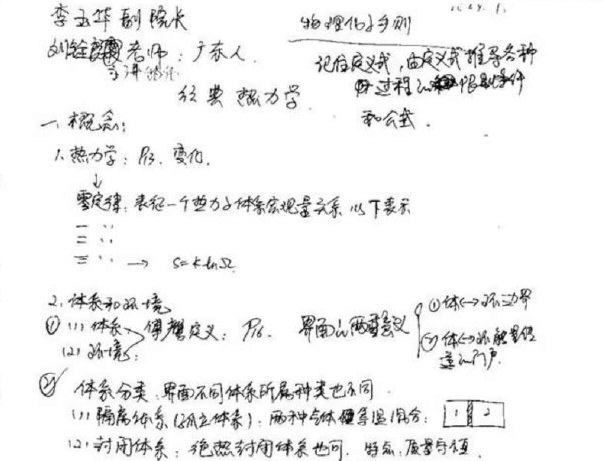 李玉华副院长
物理化学则
刘铨老师:广东人.
主讲
记住定义式,由定义式推导各种
过程的限制条件
和公式.
经典热力学.
一、概念:
1.热力学:P3.变化.
↓
零定律:表征一个热力学体系宏观量关系 以下表示
一 〃
二 〃
三 〃 → S=klnΩ
2.体系和环境
①(1)体系、 定义:P6. 界面的两重意义
(2)环境:
①体↔环边界
②体↔环能量传
递的门户
② 体系分类:界面不同体系所属种类也不同
(1)隔离体系(孤立体系):两种气体 等温混合: 1 2
(2)封闭体系:绝热封闭体系也可. 特点:质量守恒.